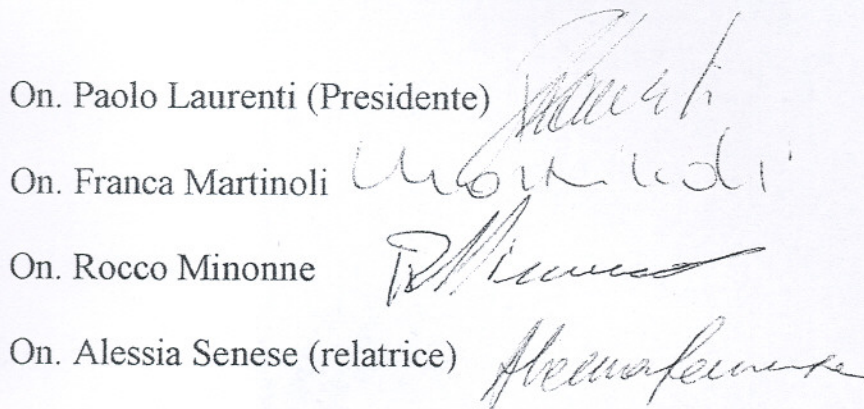 On. Paolo Laurenti (Presidente)
On. Franca Martinoli
On. Rocco Minonne
On. Alessia Senese (relatrice)